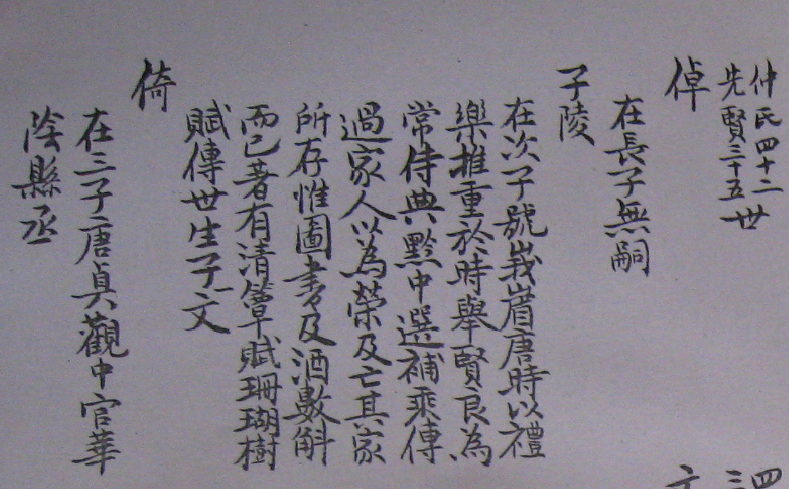 仲氏四十二
先賢三十五世
倬
在長子無嗣
子陵
在次子號峩嵋唐時以禮
樂推重於時舉賢良為
常侍典黔中選補乘傳
過家人以為榮及亡其家
所存惟圖書及酒數斛
而已著有清簟賦珊瑚樹
賦傳世生子文
倚
在三子唐貞觀中官華
陰縣丞